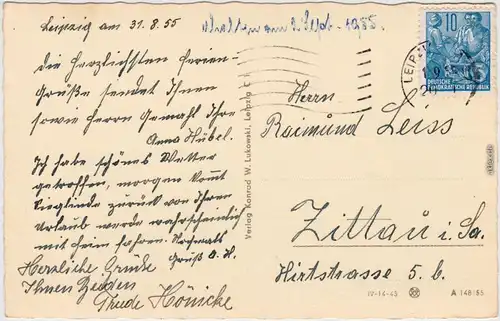 Leipzig am 31.8.55
erhalten am 2. Sept. 1955.
die herzlichsten Ferien-
Grüße sendet Ihnen
sowie Herrn Gemahl Ihre
Anna Hübel.
Ich habe schönes Wetter
getroffen, morgen kommt
Sieglinde zurück von Ihrem
Urlaub werde wahrscheinlich
mit heim fahren. Nochmals
Gruß A. H.
Herzliche Grüße
Ihnen Beiden
Trude Hönicke
Verlag Konrad W. Lukowski, Leipzig C
10
DEUTSCHE
DEMOKRATISCHE REPUBLIK
LEIPZIG
Herrn
Raimund Leiss
Zittau i. Sa.
Hirtstrasse 5. b.
IV-14-45
A 148/55